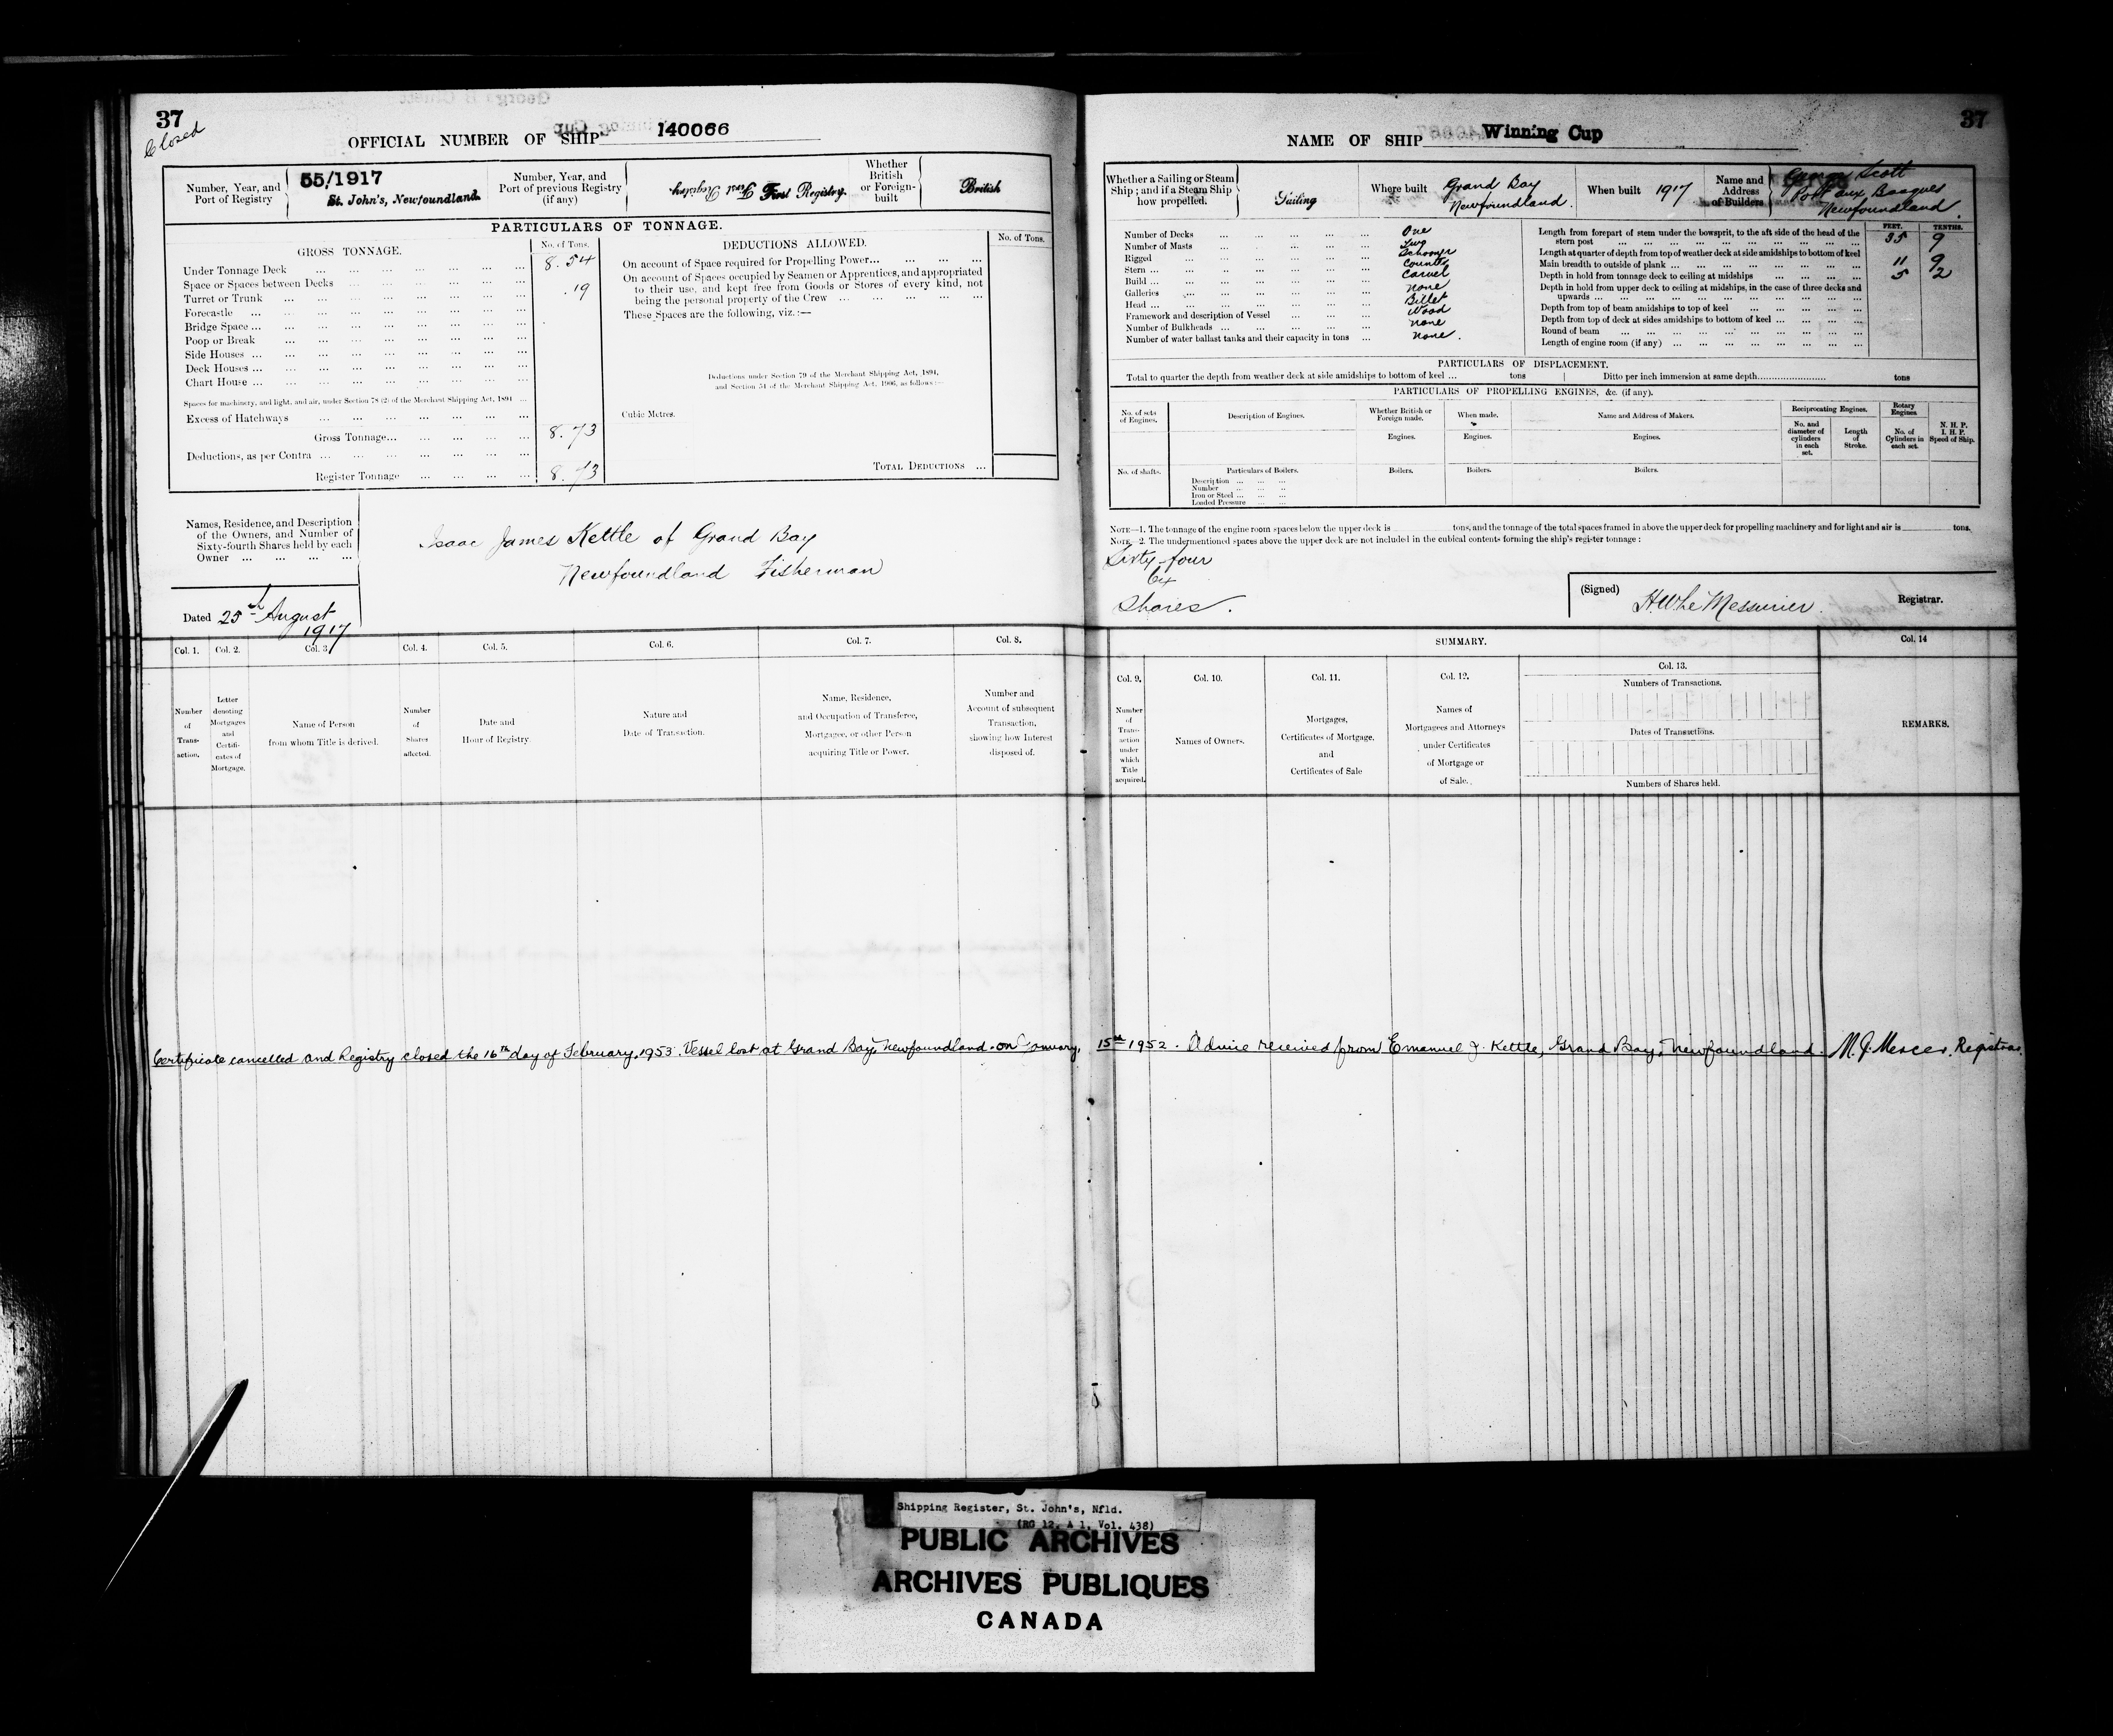 37
Closed
OFFICIAL NUMBER OF SHIP 140066
Number, Year, and Port of Registry
55/1917
St. John's, Newfoundland.
Number, Year, and Port of previous Registry (if any)
First Registry
First Registry.
Whether British or Foreign-built
British
PARTICULARS OF TONNAGE.
GROSS TONNAGE.
No. of Tons.
Under Tonnage Deck ... 8.54
Space or Spaces between Decks
Turret or Trunk ... .19
Forecastle ...
Bridge Space ...
Poop or Break ...
Side Houses ...
Deck Houses ...
Chart House ...
Spaces for machinery, and light, and air, under Section 78 (2) of the Merchant Shipping Act, 1894 ...
Excess of Hatchways ...
Gross Tonnage... 8.73
Deductions, as per Contra ...
Register Tonnage ... 8.73
DEDUCTIONS ALLOWED.
No. of Tons.
On account of Space required for Propelling Power...
On account of Spaces occupied by Seamen or Apprentices, and appropriated
to their use, and kept free from Goods or Stores of every kind, not
being the personal property of the Crew ...
These Spaces are the following, viz. :—
Deductions under Section 79 of the Merchant Shipping Act, 1894,
and Section 54 of the Merchant Shipping Act, 1906, as follows :—
Cubic Metres.
TOTAL DEDUCTIONS ...
Names, Residence, and Description
of the Owners, and Number of
Sixty-fourth Shares held by each
Owner ...
Isaac James Kettle of Grand Bay
Newfoundland Fisherman
Dated 25th August
1917
Col. 1.
Col. 2.
Col. 3.
Col. 4.
Col. 5.
Col. 6.
Col. 7.
Col. 8.
Number of Trans-action.
Letter denoting Mortgages and Certifi-cates of Mortgage.
Name of Person from whom Title is derived.
Number of Shares affected.
Date and Hour of Registry.
Nature and Date of Transaction.
Name, Residence, and Occupation of Transferee, Mortgagee, or other Person acquiring Title or Power.
Number and Account of subsequent Transaction, showing how Interest disposed of.
37
NAME OF SHIP Winning Cup
Whether a Sailing or Steam Ship ; and if a Steam Ship how propelled.
Sailing
Where built
Grand Bay
Newfoundland.
When built 1917
Name and Address of Builders
George Scott
Port aux Basques
Newfoundland.
Number of Decks ... One
Number of Masts ... Two
Rigged ... Schooner
Stern ... Counter
Build ... Carvel
Galleries ... none
Head ... Billet
Framework and description of Vessel ... Wood
Number of Bulkheads ... none
Number of water ballast tanks and their capacity in tons ... none.
FEET. TENTHS.
Length from forepart of stem under the bowsprit, to the aft side of the head of the
stern post ... 35 9
Length at quarter of depth from top of weather deck at side amidships to bottom of keel
Main breadth to outside of plank ... 11 9
Depth in hold from tonnage deck to ceiling at midships ... 5 2
Depth in hold from upper deck to ceiling at midships, in the case of three decks and
upwards ...
Depth from top of beam amidships to top of keel ...
Depth from top of deck at sides amidships to bottom of keel ...
Round of beam ...
Length of engine room (if any) ...
PARTICULARS OF DISPLACEMENT.
Total to quarter the depth from weather deck at side amidships to bottom of keel ... tons
Ditto per inch immersion at same depth........ tons
PARTICULARS OF PROPELLING ENGINES, &c. (if any).
No. of sets of Engines.
Description of Engines.
Whether British or Foreign made.
When made.
Name and Address of Makers.
Reciprocating Engines.
Rotary Engines
Engines.
Engines.
Engines.
No. and diameter of cylinders in each set.
Length of Stroke.
No. of Cylinders in each set.
N. H. P.
I. H. P.
Speed of Ship.
No. of shafts.
Particulars of Boilers.
Boilers.
Boilers.
Boilers.
Description ...
Number ...
Iron or Steel ...
Loaded Pressure ...
NOTE—1. The tonnage of the engine room spaces below the upper deck is tons, and the tonnage of the total spaces framed in above the upper deck for propelling machinery and for light and air is tons.
NOTE—2. The undermentioned spaces above the upper deck are not included in the cubical contents forming the ship's register tonnage :
Sixty-four
64
Shares.
(Signed) H.W. LeMessurier. Registrar.
SUMMARY.
Col. 14
Col. 9.
Col. 10.
Col. 11.
Col. 12.
Col. 13.
Numbers of Transactions.
Number of Trans-action under which Title acquired.
Names of Owners.
Mortgages, Certificates of Mortgage, and Certificates of Sale
Names of Mortgagees and Attorneys under Certificates of Mortgage or of Sale.
Dates of Transactions.
Numbers of Shares held.
REMARKS.
Certificate cancelled and Registry closed the 16th day of February, 1953. Vessel lost at Grand Bay, Newfoundland on January, 15th 1952. Advice received from Emanuel J. Kettle, Grand Bay, Newfoundland. M. J. Mercer. Registrar.
Shipping Register, St. John's, Nfld.
(RG 12, A 1, Vol. 438)
PUBLIC ARCHIVES
ARCHIVES PUBLIQUES
CANADA